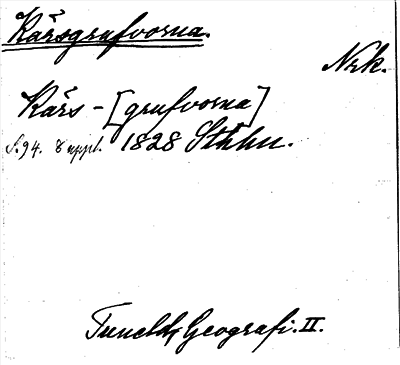 Kårsgrufvorna.
Nrk.
Kårs - [grufvorna]
S. 94. 8 uppl. 1828 Sthlm.
Tuneld, Geografi. II.